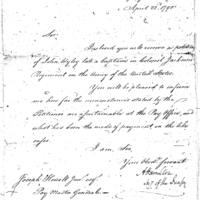 April 22d 1790
Sir,
Inclosed you will receive a petition
of John Wyley late a Captain in Colonel Jacksons
Regiment in the Army of the United States.
You will be pleased to inform
me how far the circumstances stated by the
Petitioner are ascertainable at the Pay Office, and
what has been the mode of payment in the like
cases.
I am, Sir,
Your Obedt Servant
A Hamilton
Secy of the Treasy
Joseph Howell Junr esqr
Pay Master General